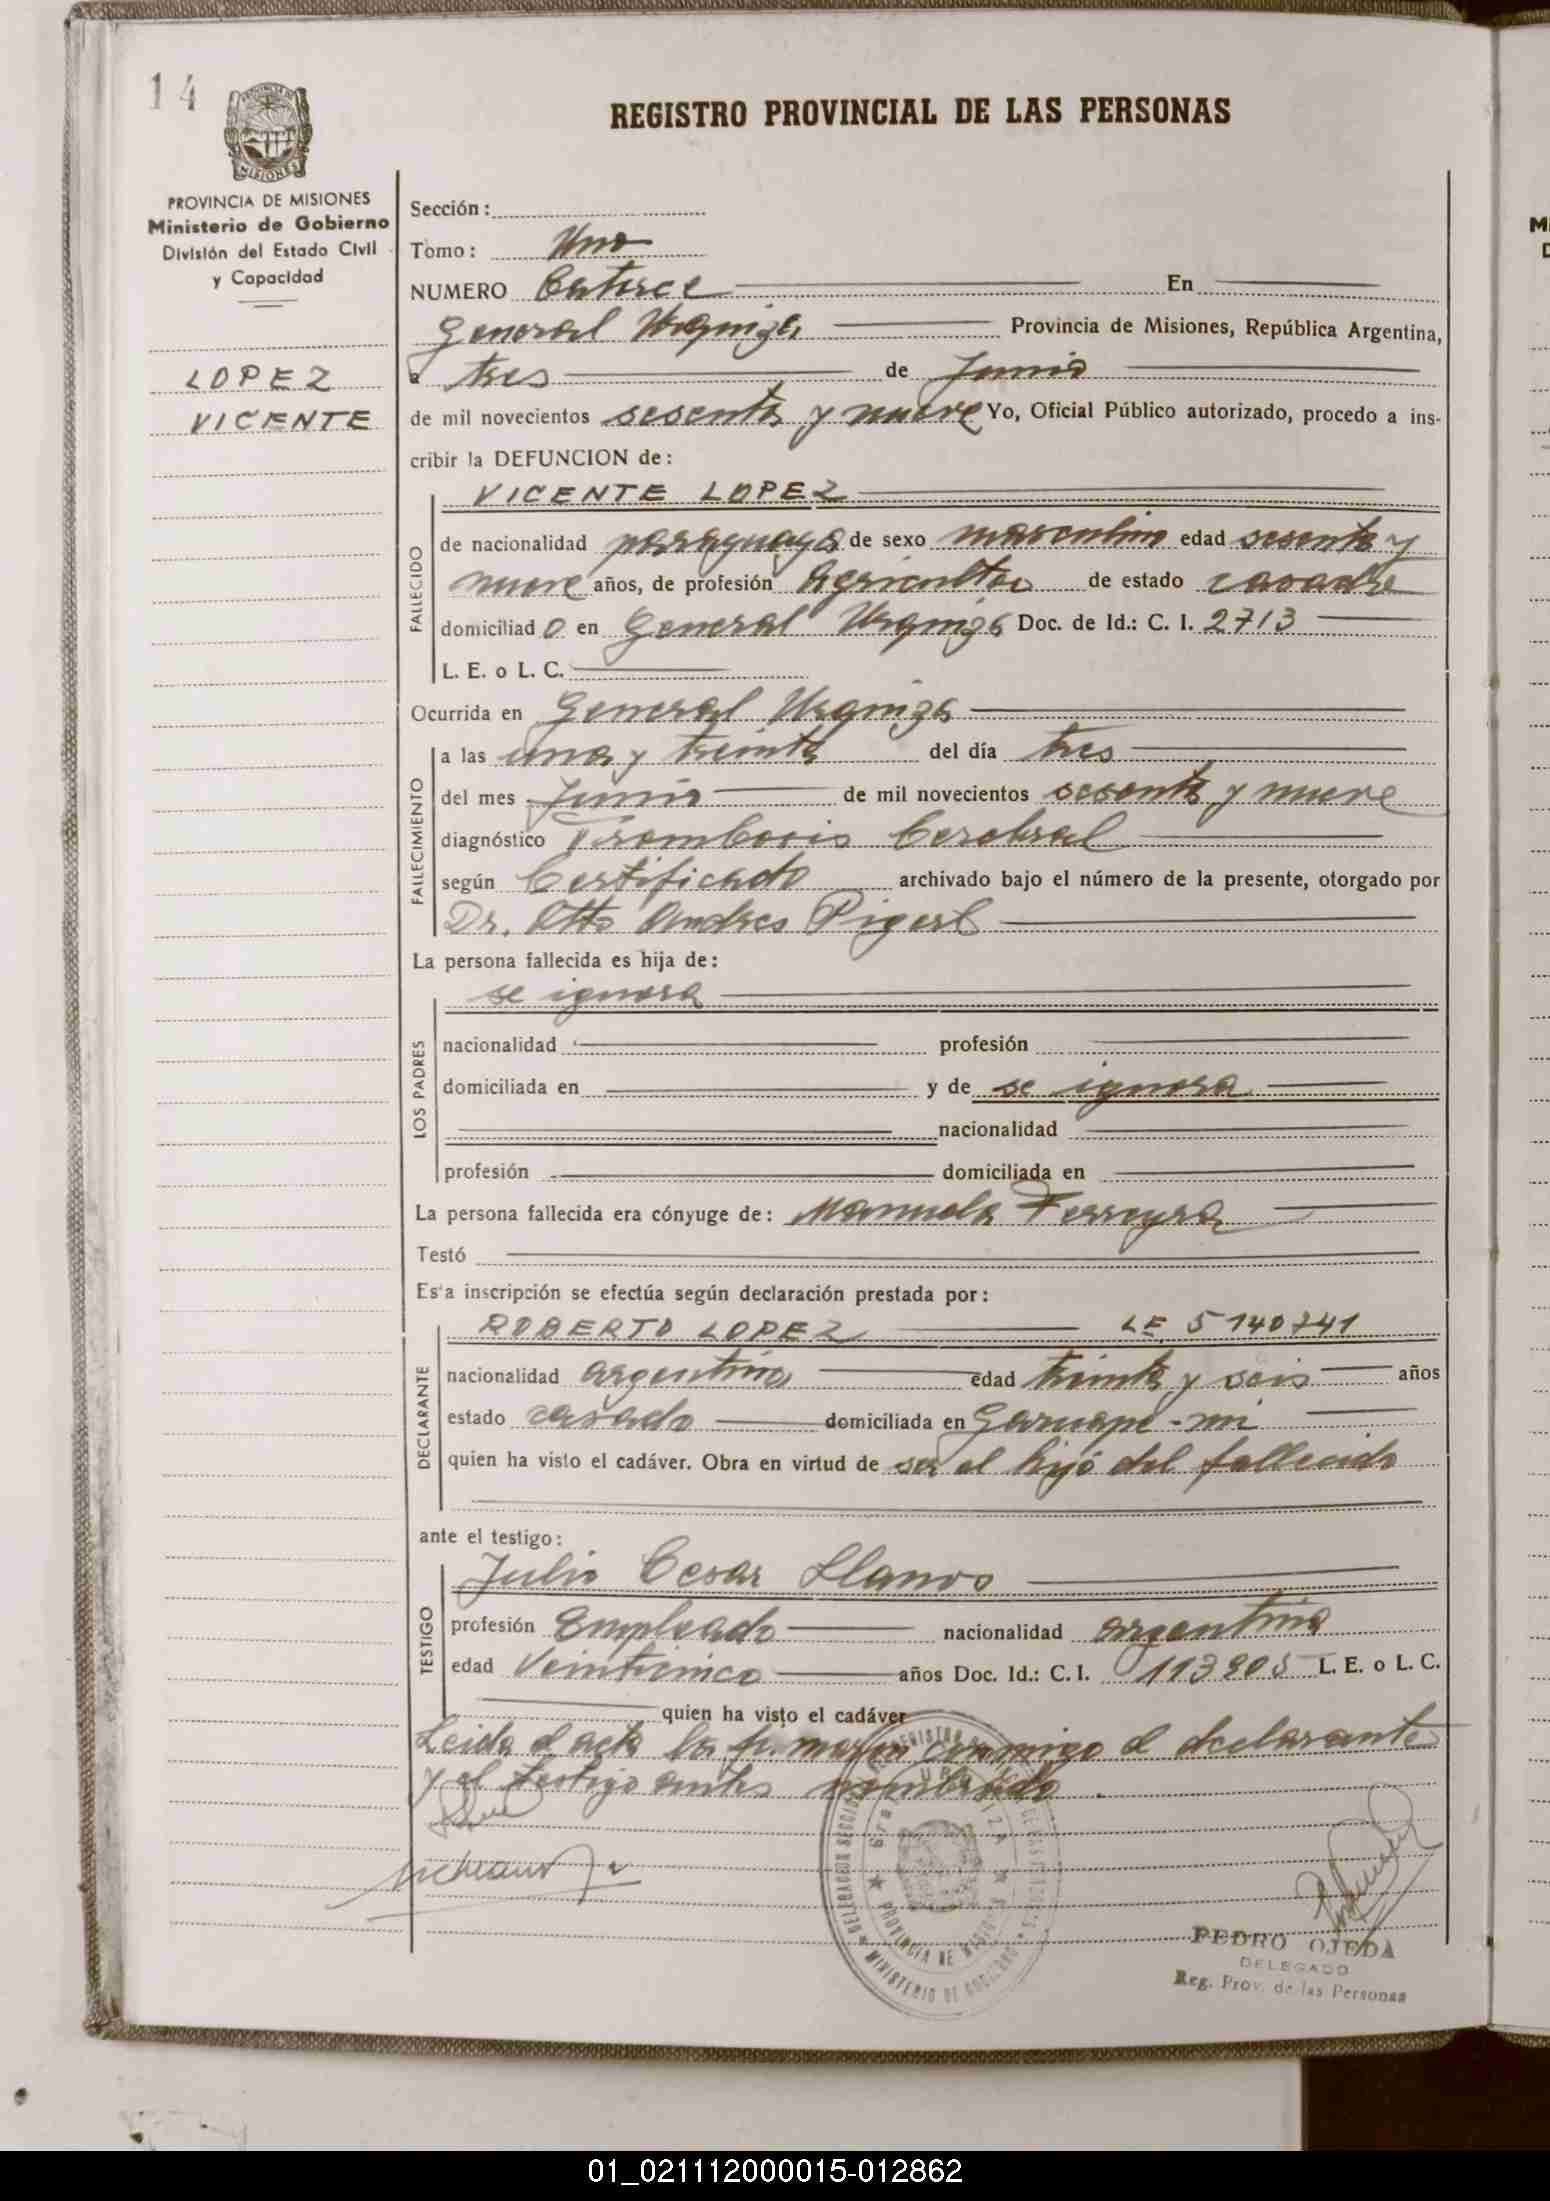 14
REGISTRO PROVINCIAL DE LAS PERSONAS
PROVINCIA DE MISIONES
Ministerio de Gobierno
División del Estado Civil
y Capacidad
LOPEZ
VICENTE
Sección:
Tomo: Uno
NUMERO Catorce En
General Urquiza Provincia de Misiones, República Argentina,
a tres de Junio
de mil novecientos sesenta y nueve Yo, Oficial Público autorizado, procedo a ins-
cribir la DEFUNCION de:
VICENTE LOPEZ
FALLECIDO
de nacionalidad paraguaya de sexo masculino edad sesenta y
nueve años, de profesión Agricultor de estado casado
domiciliad o en General Urquiza Doc. de Id.: C. I. 2713
L. E. o L. C.
Ocurrida en General Urquiza
FALLECIMIENTO
a las una y treinta del día tres
del mes Junio de mil novecientos sesenta y nueve
diagnóstico Trombosis Cerebral
según Certificado archivado bajo el número de la presente, otorgado por
Dr. Otto Andres Pigerl
La persona fallecida es hija de:
se ignora
LOS PADRES
nacionalidad profesión
domiciliada en y de se ignora
nacionalidad
profesión domiciliada en
La persona fallecida era cónyuge de: Manuela Ferreyra
Testó
Esta inscripción se efectúa según declaración prestada por:
ROBERTO LOPEZ LE 5140741
DECLARANTE
nacionalidad argentina edad treinta y seis años
estado casado domiciliada en Garuape-mi
quien ha visto el cadáver. Obra en virtud de ser el hijo del fallecido
ante el testigo:
Julio Cesar Llanos
TESTIGO
profesión Empleado nacionalidad argentina
edad Veinticinco años Doc. Id.: C. I. 113905 L. E. o L. C.
quien ha visto el cadáver
Leida el acta la firman conmigo el declarante
y el testigo antes nombrado.
PROVINCIA DE MISIONES
MINISTERIO DE GOBIERNO
PEDRO OJEDA
DELEGADO
Reg. Prov. de las Personas
01_021112000015-012862